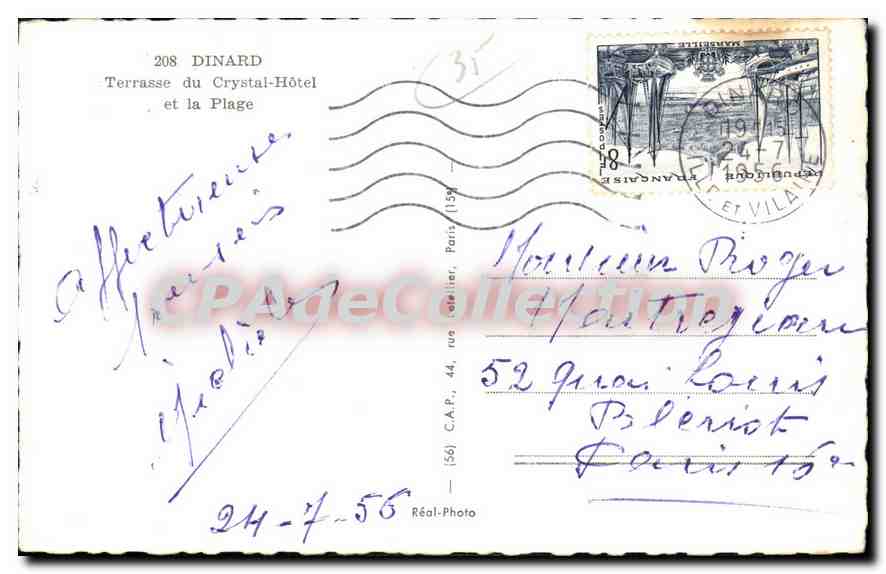 208 DINARD
Terrasse du Crystal-Hôtel
et la Plage
35
MARSEILLE
8F
POSTES
REPUBLIQUE FRANÇAISE
DINARD
19H15
24-7
1956
ILLE ET VILAINE
Affectueuse
24-7-56
Réal-Photo
(56) C.A.P., 44, rue Letellier, Paris (15e)
CPAdeCollection
Monsieur Roger
52 quai Louis
Blériot
Paris 16e